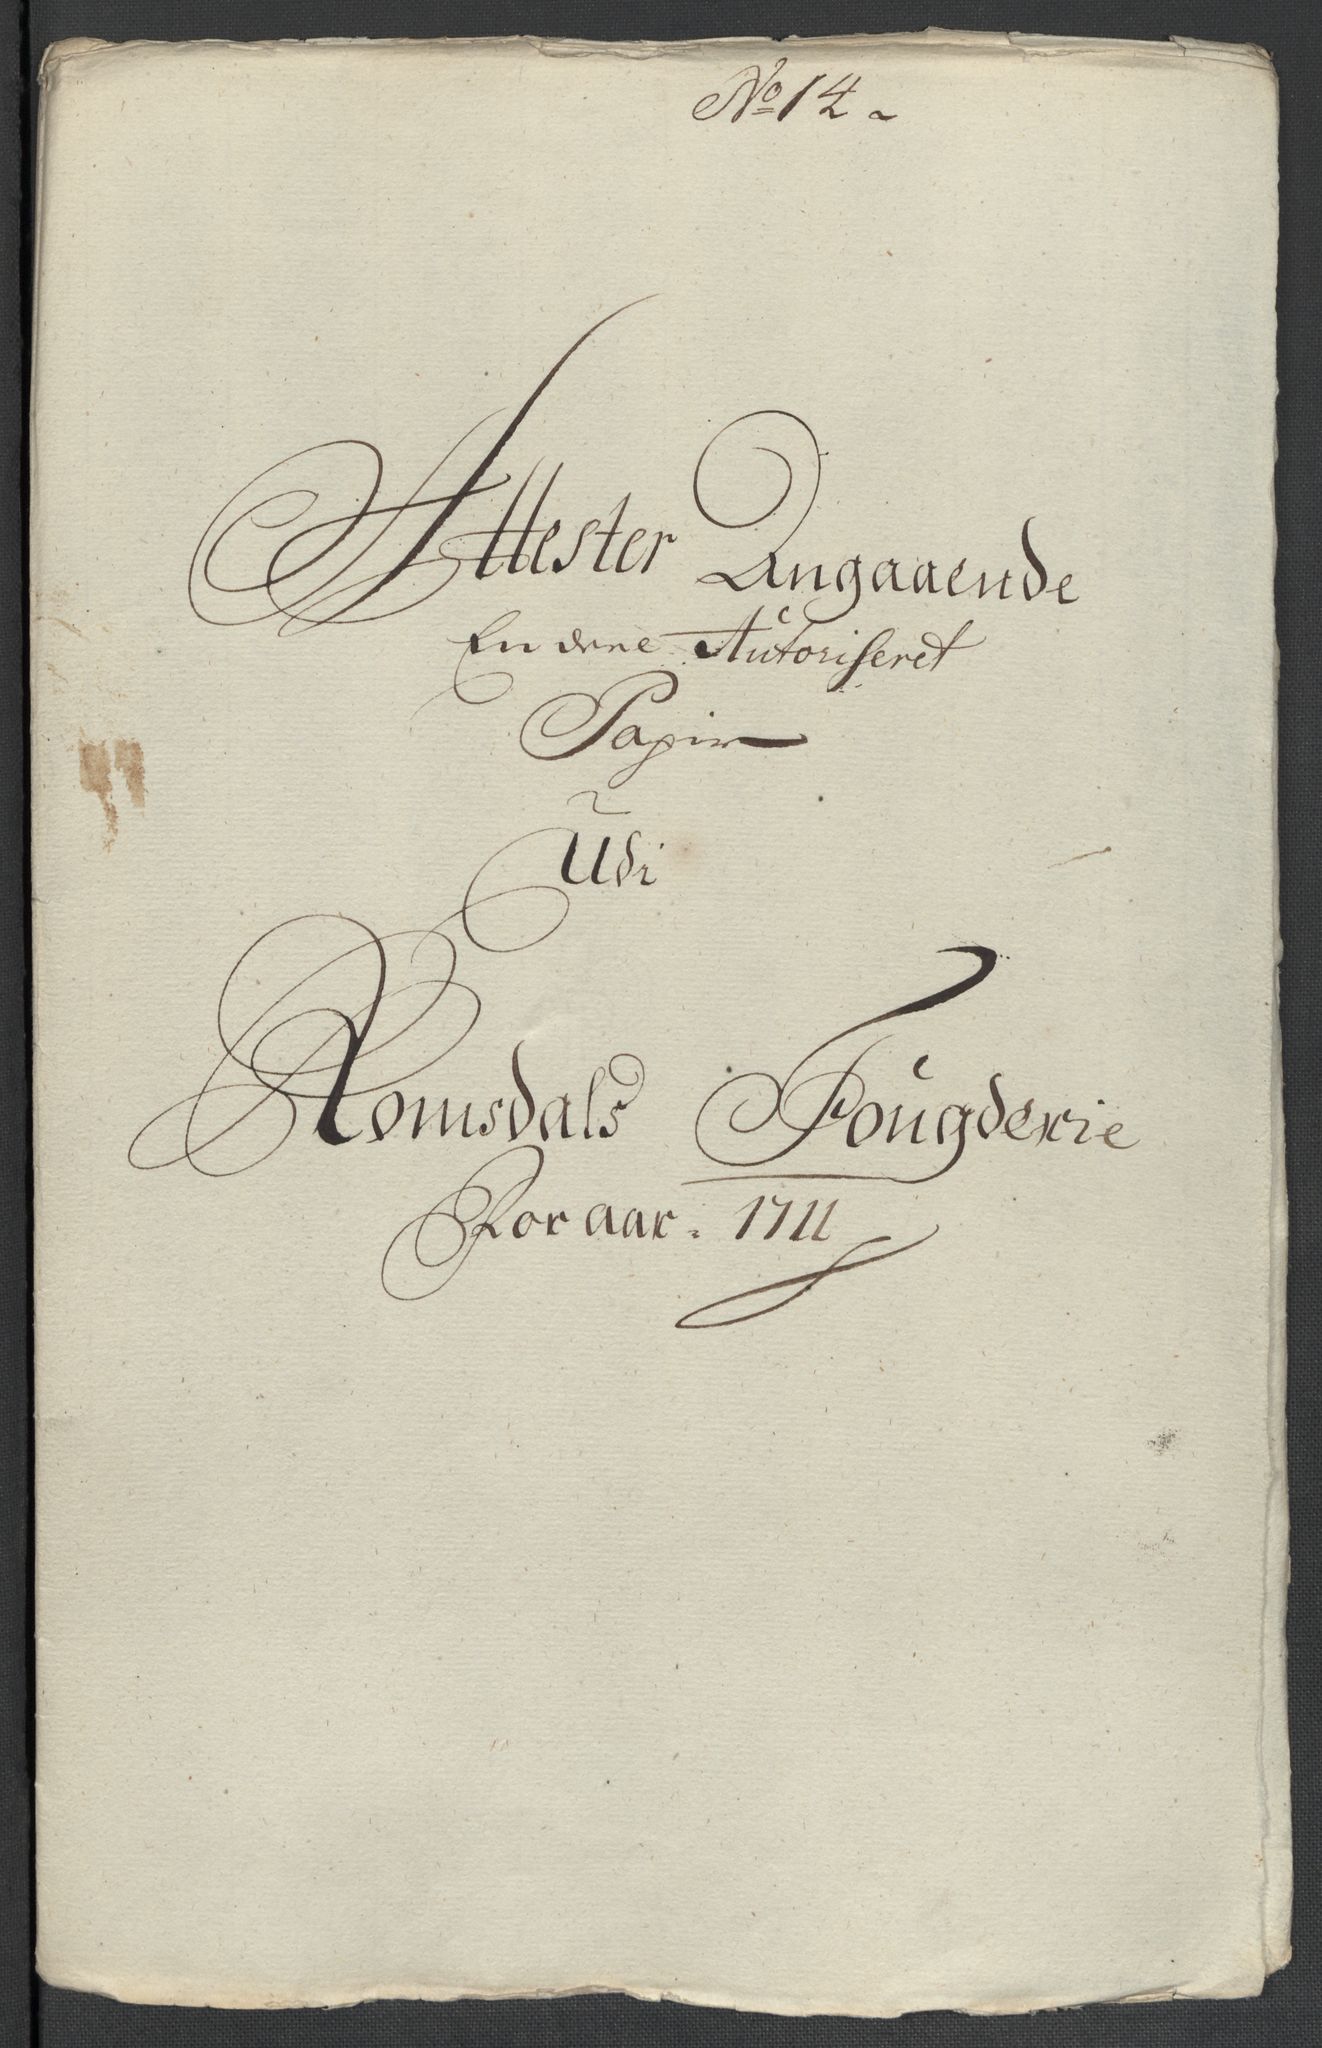 No 14
Attester Angaaende
Autoriseret
Papir
Udi
Romsdals Fougderie
For aar. 1711